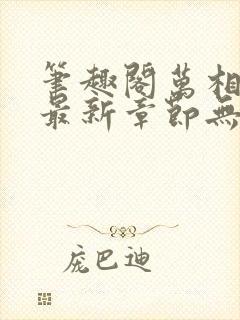 筆趣閣萬相
最新章節無
庞巴迪